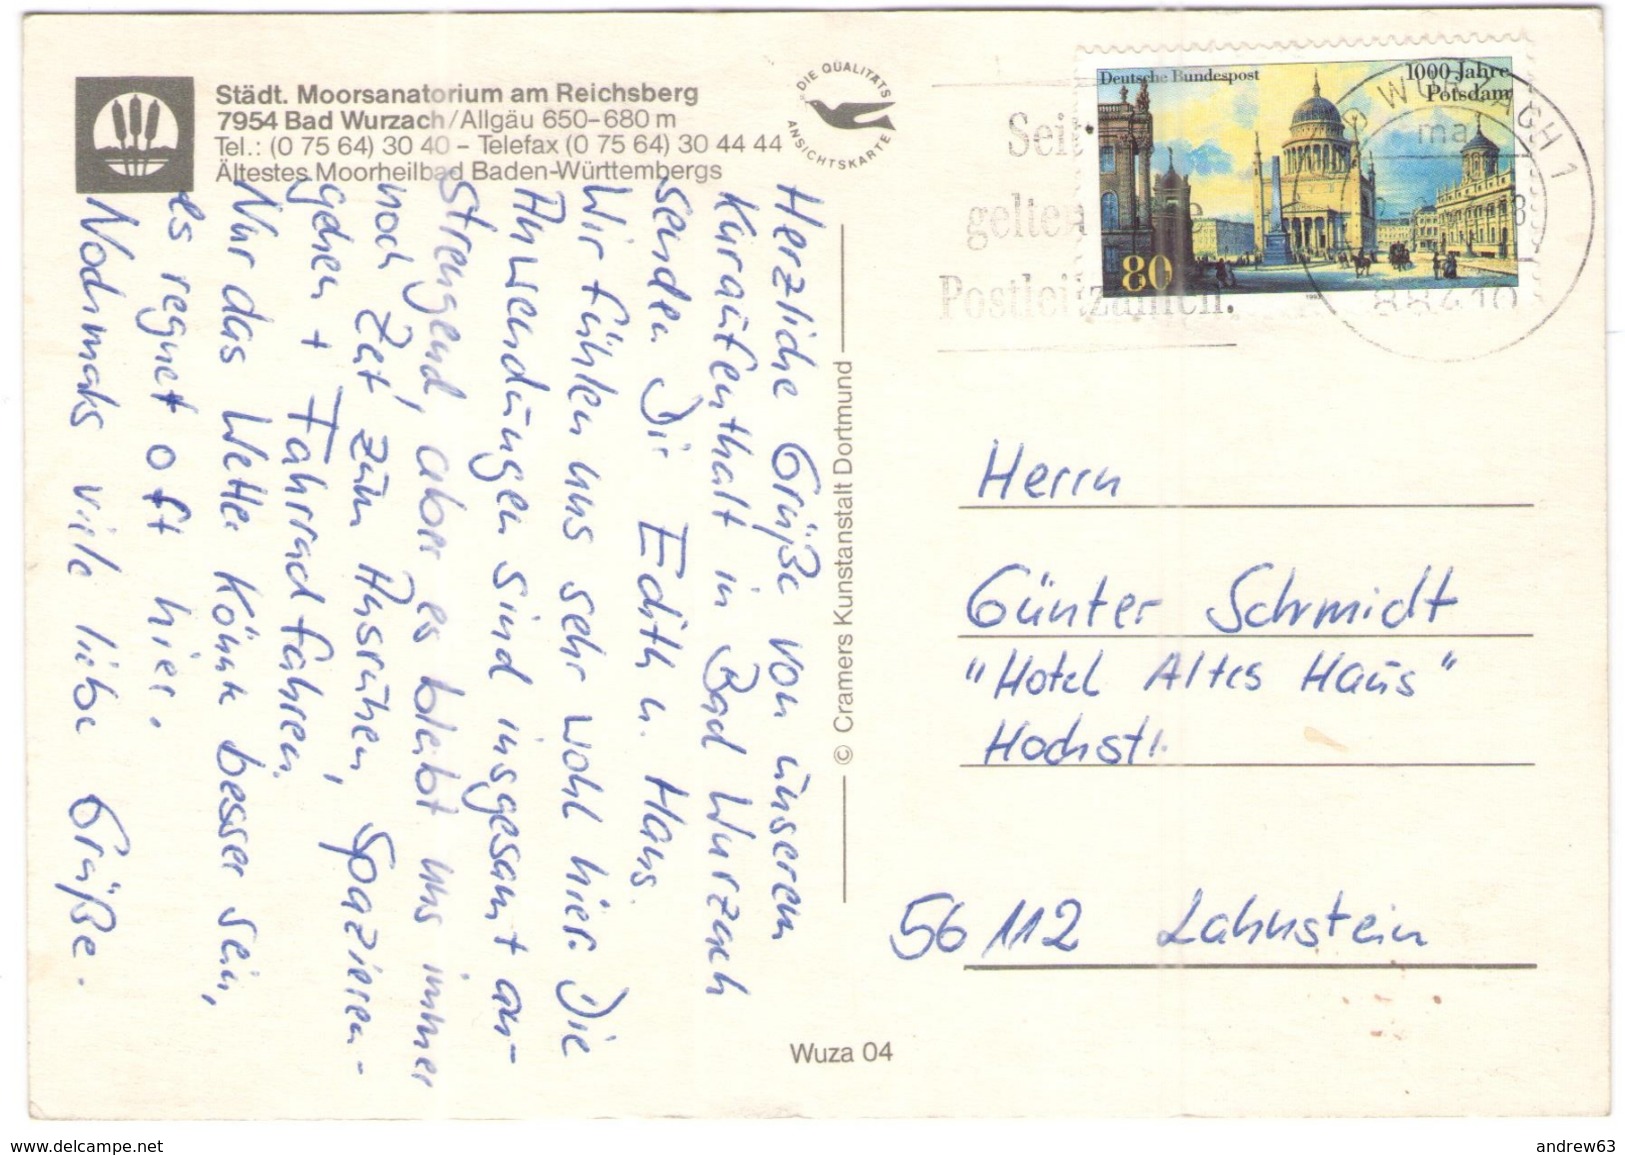 Städt. Moorsanatorium am Reichsberg
7954 Bad Wurzach/Allgäu 650–680 m
Tel.: (0 75 64) 30 40 – Telefax (0 75 64) 30 44 44
Ältestes Moorheilbad Baden-Württembergs
DIE QUALITÄTS
ANSICHTSKARTE
Herzliche Grüße von unserem
Kuraufenthalt in Bad Wurzach
senden Dir Edith u. Hans.
Wir fühlen uns sehr wohl hier. Die
Anwendungen sind insgesamt an-
strengend, aber es bleibt uns immer
noch Zeit zum Ausruhen, Spazieren-
gehen + Fahrradfahren.
Nur das Wetter könnte besser sein,
es regnet oft hier.
Nochmals viele liebe Grüße.
© Cramers Kunstanstalt Dortmund
Wuza 04
Seit
gelten
Postleitzahlen.
Deutsche Bundespost
1000 Jahre
Potsdam
80
WURZACH 1
88410
Herrn
Günter Schmidt
"Hotel Altes Haus"
Hochstr.
56112 Lahnstein
www.delcampe.net
andrew63